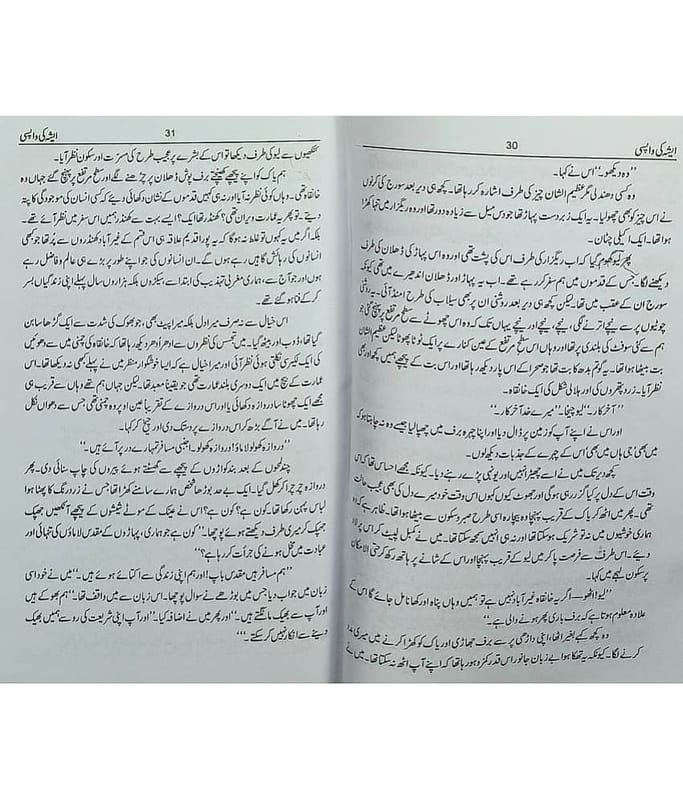 ایشہ کی واپسی
30
"وہ دیکھو۔" اس نے کہا۔
وہ کسی دھندلی مگر عظیم الشان چیز کی طرف اشارہ کر رہا تھا۔ کچھ ہی دیر بعد سورج کی کرنوں
نے اس چیز کو بھی چھولیا۔ یہ ایک زبردست پہاڑ تھا جو دس میل سے زیادہ دور تھا اور وہ ریگزار میں تنہا کھڑا
ہوا تھا۔ ایک اکیلی چٹان۔
پھر لیو گھوم گیا کہ اب ریگزار کی طرف اس کی پشت تھی اور وہ اس پہاڑ کی ڈھلان کی طرف
دیکھنے لگا۔ جس کے قدموں میں ہم سفر کر رہے تھے۔ اب یہ پہاڑ اور ڈھلان اندھیرے میں تھی کیونکہ
سورج ان کے عقب میں تھا۔ لیکن کچھ ہی دیر بعد روشنی ان پر بھی سیلاب کی طرح امنڈ آئی۔ یہ روشنی
چوٹیوں پر سے نیچے اترنے لگی، نیچے، نیچے اور نیچے یہاں تک کہ وہ اس چھوٹے سے سطح مرتفع پر پہنچ گئی جو
ہم سے کئی سو فٹ کی بلندی پر تھا اور وہاں اس سطح مرتفع کے عین کنارے پر ایک ٹوٹا پھوٹا لیکن عظیم الشان
بت بیٹھا ہوا تھا۔ یہ گوتم بدھ کا بت تھا جو صحرا کے اس پار دیکھ رہا تھا اور اس بت کے پیچھے ہمیں کچھ اور بھی
نظر آیا۔ زرد پتھروں کی اور ہلالی شکل کی ایک خانقاہ۔
"آخر کار۔" لیو چیخا۔ "میرے خدا آخر کار۔"
اور اس نے اپنے آپ کو زمین پر ڈال دیا اور اپنا چہرہ برف میں چھپا لیا جیسے وہ نہ چاہتا ہو کہ
میں بھی، جی ہاں میں بھی اس کے چہرے کے جذبات دیکھ لوں۔
کچھ دیر تک میں نے اسے چھیڑا نہیں اور یونہی پڑے رہنے دیا۔ کیونکہ مجھے احساس تھا کہ اس
وقت اس کے دل پر کیا گزر رہی ہو گی اور جھوٹ کیوں کہوں اس وقت خود میرے دل کی بھی عجیب حالت
تھی۔ پھر میں اٹھ کر یاک کے قریب پہنچا وہ بیچارہ اسی طرح صبر و سکون سے بیٹھا ہوا تھا۔ ظاہر ہے کہ وہ
ہماری خوشیوں میں نہ تو شریک ہو سکتا تھا اور نہ ہی انہیں سمجھ سکتا تھا۔ میں نے کمبل لپیٹ کر اس پر لاد
دیئے۔ اس طرف سے فرصت پا کر میں لیو کے قریب پہنچا اور اس کے شانے پر ہاتھ رکھ کر حتی الامکان
پرسکون لہجے میں کہا۔
"لیو! اٹھو۔ اگر یہ خانقاہ غیر آباد نہیں ہے تو ہمیں وہاں پناہ اور کھانا مل جائے گا اس کے
علاوہ معلوم ہوتا ہے کہ برف باری پھر ہونے والی ہے۔"
وہ کچھ کہے بغیر اٹھا، اپنی داڑھی پر سے برف جھاڑی اور یاک کو کھڑا کرنے میں میری مدد
کرنے لگا۔ کیونکہ یہ تھکا ہوا بے زبان جانور اس قدر کمزور ہو رہا تھا کہ اپنے آپ اٹھ نہ سکتا تھا۔ میں نے
ایشہ کی واپسی
31
کنکھیوں سے لیو کی طرف دیکھا تو اس کے بشرے پر عجیب طرح کی مسرت اور سکون نظر آیا۔
ہم یاک کو اپنے پیچھے کھینچتے برف پوش ڈھلان پر چڑھنے لگے اور سطح مرتفع پر پہنچ گئے جہاں وہ
خانقاہ تھی۔ وہاں کوئی نظر نہ آیا اور نہ ہی کہیں قدموں کے نشان دکھائی دیئے کہ کسی انسان کی موجودگی کا پتہ
دیتے۔ تو پھر یہ عمارت ویران تھی؟ کھنڈر تھا ایک؟ ایسے بہت سے کھنڈر ہمیں اس سفر میں نظر آئے تھے۔
بلکہ اگر میں یہ کہوں تو غلط نہ ہو گا کہ یہ پورا قدیم علاقہ ہی اس قسم کے غیر آباد کھنڈروں سے پر تھا جو کبھی
انسانوں کی رہائش گاہیں رہے ہوں گے۔ ان انسانوں کی جو اپنے طور پر بڑے ہی عالم و فاضل رہے
ہوں اور جو آج سے، ہماری مغربی تہذیب کی ابتداء سے، سینکڑوں بلکہ ہزاروں سال پہلے اپنی زندگیاں بسر
کر کے فنا ہو گئے تھے۔
اس خیال سے نہ صرف میرا دل بلکہ میرا پیٹ بھی، جو بھوک کی شدت سے ایک گڑھا سا بن
گیا تھا، ڈوب اور بیٹھ گیا۔ میں تجسس کی نظروں سے ادھر اُدھر دیکھ رہا تھا کہ خانقاہ کی چمنی میں سے دھوئیں
کی ایک لکیر سی نکلتی ہوئی نظر آئی اور میرا خیال ہے کہ ایسا خوشگوار منظر میں نے پہلے کبھی نہ دیکھا تھا۔ اس
عمارت کے بیچ میں ایک دوسری بلند عمارت تھی جو یقیناً معبد تھا۔ لیکن جہاں ہم تھے وہاں سے قریب ہی
مجھے ایک چھوٹا سا دروازہ دکھائی دیا اور اس دروازے کے تقریباً عین اوپر وہ چمنی تھی جس سے دھواں نکل
رہا تھا۔ میں نے آگے بڑھ کر اس دروازے پر دستک دی اور چیخ کر کہا۔
"دروازہ کھولو لاماؤ! دروازہ کھولو۔ اجنبی مسافر تمہارے در پر آئے ہیں۔"
چند لمحوں کے بعد بند کواڑوں کے پیچھے سے گھسٹتے ہوئے پیروں کی چاپ سنائی دی۔ پھر
دروازہ چرچرا کر کھل گیا۔ ایک بے حد بوڑھا شخص ہمارے سامنے کھڑا تھا جس نے زرد رنگ کا پھٹا ہوا
لباس پہن رکھا تھا۔ "کون ہے؟ کون ہے؟" اس نے عینک کے موٹے شیشوں کے پیچھے آنکھیں جھپک
جھپک کر میری طرف دیکھتے ہوئے پوچھا۔ "کون ہے جو ہماری، پہاڑوں کے مقدس لاماؤں کی تنہائی اور
عبادت میں مخل ہونے کی جرأت کر رہا ہے؟"
"ہم مسافر ہیں مقدس باپ! اور ہم اپنی زندگی سے اکتائے ہوئے ہیں۔" میں نے خود اسی
زبان میں جواب دیا جس میں بوڑھے نے سوال پوچھا۔ اس زبان سے میں واقف تھا۔ "ہم بھوکے ہیں
اور آپ سے بھیک مانگتے ہیں۔" اور پھر میں نے اضافہ کیا۔ "اور آپ اپنی شریعت کی رو سے ہمیں بھیک
دینے سے انکار نہیں کر سکتے۔"